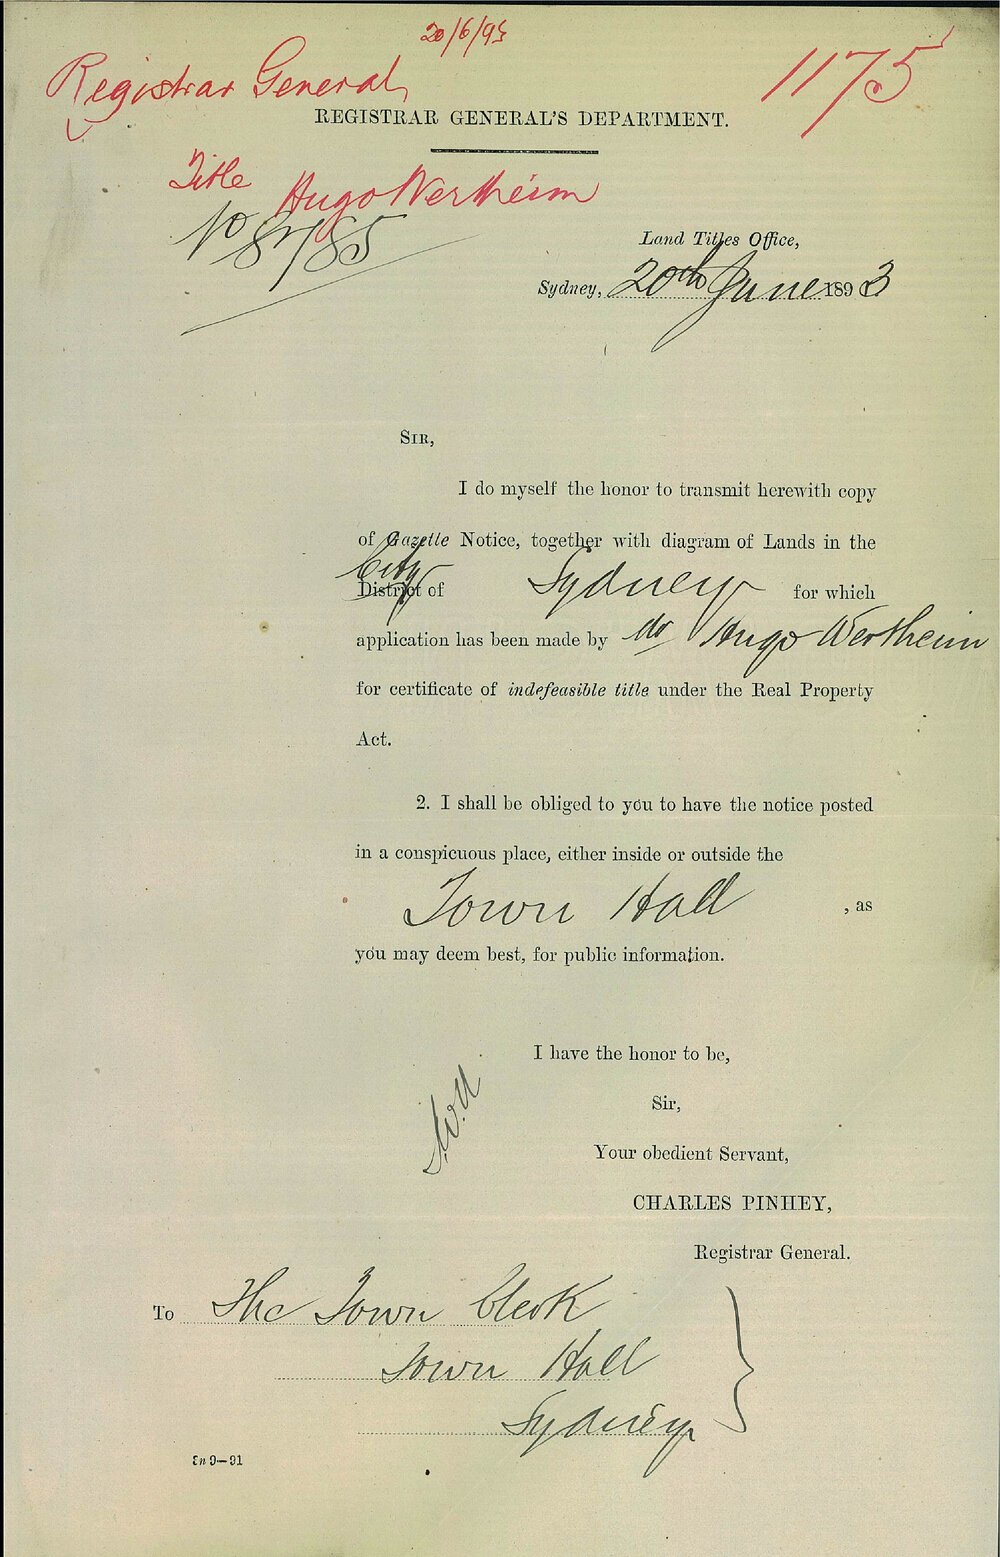 20/6/93
Registrar General
1175
REGISTRAR GENERAL'S DEPARTMENT.
Title Hugo Wertheim
No 8785
Land Titles Office,
Sydney, 20th June 1893
SIR,
I do myself the honor to transmit herewith copy
of Gazette Notice, together with diagram of Lands in the
City
District of Sydney for which
application has been made by Mr Hugo Wertheim
for certificate of indefeasible title under the Real Property
Act.
2. I shall be obliged to you to have the notice posted
in a conspicuous place, either inside or outside the
Town Hall , as
you may deem best, for public information.
I have the honor to be,
Sir,
Your obedient Servant,
CHARLES PINHEY,
Registrar General.
To The Town Clerk
Town Hall
Sydney
9—91